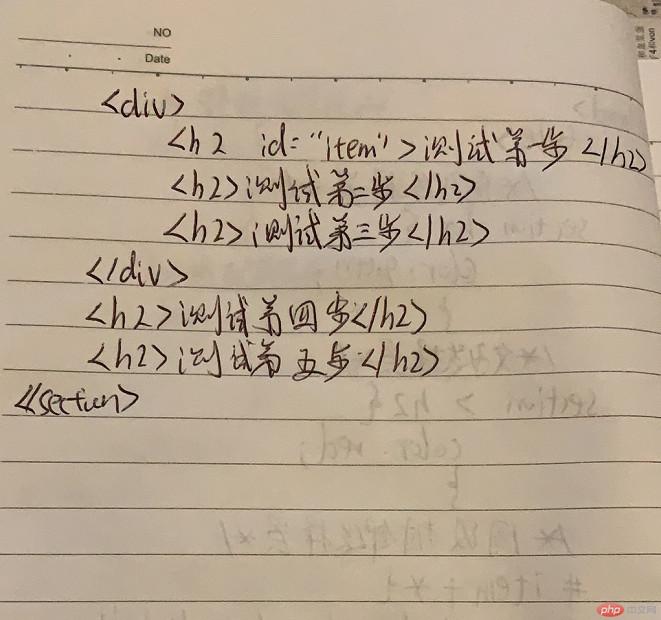 NO
Date
<div>
<h2 id="item">测试第一步</h2>
<h2>测试第二步</h2>
<h2>测试第三步</h2>
</div>
<h2>测试第四步</h2>
<h2>测试第五步</h2>
</section>
php 中文网